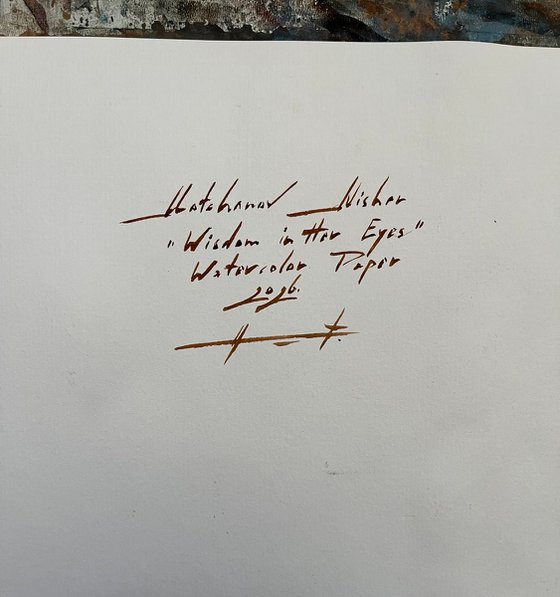 Matchanov Alisher
"Wisdom in Her Eyes"
Watercolor Paper
2026.